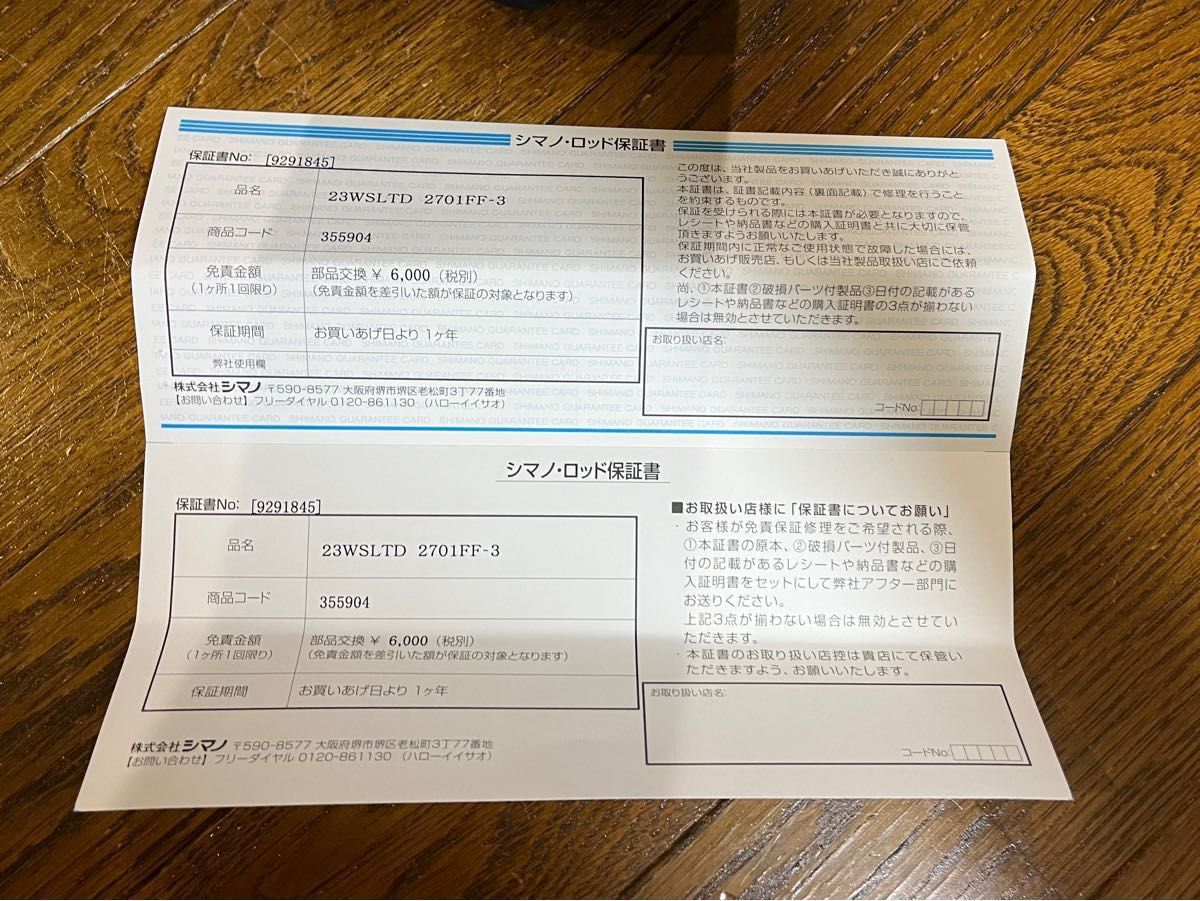 シマノ・ロッド保証書
保証書No: [9291845]
品名 23WSLTD 2701FF-3
商品コード 355904
免責金額 部品交換 ¥ 6,000（税別）
（1ヶ所1回限り） （免責金額を差引いた額が保証の対象となります）
保証期間 お買いあげ日より 1ヶ年
弊社使用欄
株式会社シマノ 〒590-8577 大阪府堺市堺区老松町3丁77番地
【お問い合わせ】フリーダイヤル 0120-861130 （ハローイイサオ）
この度は、当社製品をお買いあげいただき誠にありがと
うございます。
本証書は、証書記載内容（裏面記載）で修理を行うこと
を約束するものです。
保証を受けられる際には本証書が必要となりますので、
レシートや納品書などの購入証明書と共に大切に保管
頂きますようお願いいたします。
保証期間内に正常なご使用状態で故障した場合には、
お買いあげ販売店、もしくは当社製品取扱い店にご依頼
ください。
尚、①本証書②破損パーツ付製品③日付の記載がある
レシートや納品書などの購入証明書の3点が揃わない
場合は無効とさせていただきます。
お取り扱い店名:
コードNo:
シマノ・ロッド保証書
保証書No: [9291845]
品名 23WSLTD 2701FF-3
商品コード 355904
免責金額 部品交換 ¥ 6,000（税別）
（1ヶ所1回限り） （免責金額を差引いた額が保証の対象となります）
保証期間 お買いあげ日より 1ヶ年
株式会社シマノ 〒590-8577 大阪府堺市堺区老松町3丁77番地
【お問い合わせ】フリーダイヤル 0120-861130 （ハローイイサオ）
■お取扱い店様に「保証書についてお願い」
・お客様が免責保証修理をご希望される際、
①本証書の原本、②破損パーツ付製品、③日
付の記載があるレシートや納品書などの購
入証明書をセットにして弊社アフター部門に
お送りください。
上記3点が揃わない場合は無効とさせてい
ただきます。
・本証書のお取り扱い店控は貴店にて保管い
ただきますよう、お願いいたします。
お取り扱い店名:
コードNo: